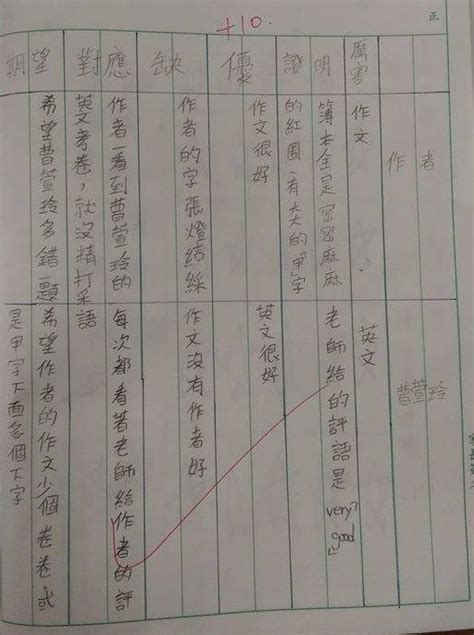 正
+10.
作者
曹萱玲
厲害
作文
英文
證明
簿本全是密密麻麻
的紅圈,有大的"甲"字
老師給的評語是"very good"
優
作文很好
英文很好
缺
作者的字張燈結綵
作文沒有作者好
對應
作者一看到曹萱玲的
英文考卷,就沒精打采
每次都看著老師給作者的評
語
期望
希望曹萱玲多錯一題
希望作者的作文少個卷卷或
是甲字下面多個下字